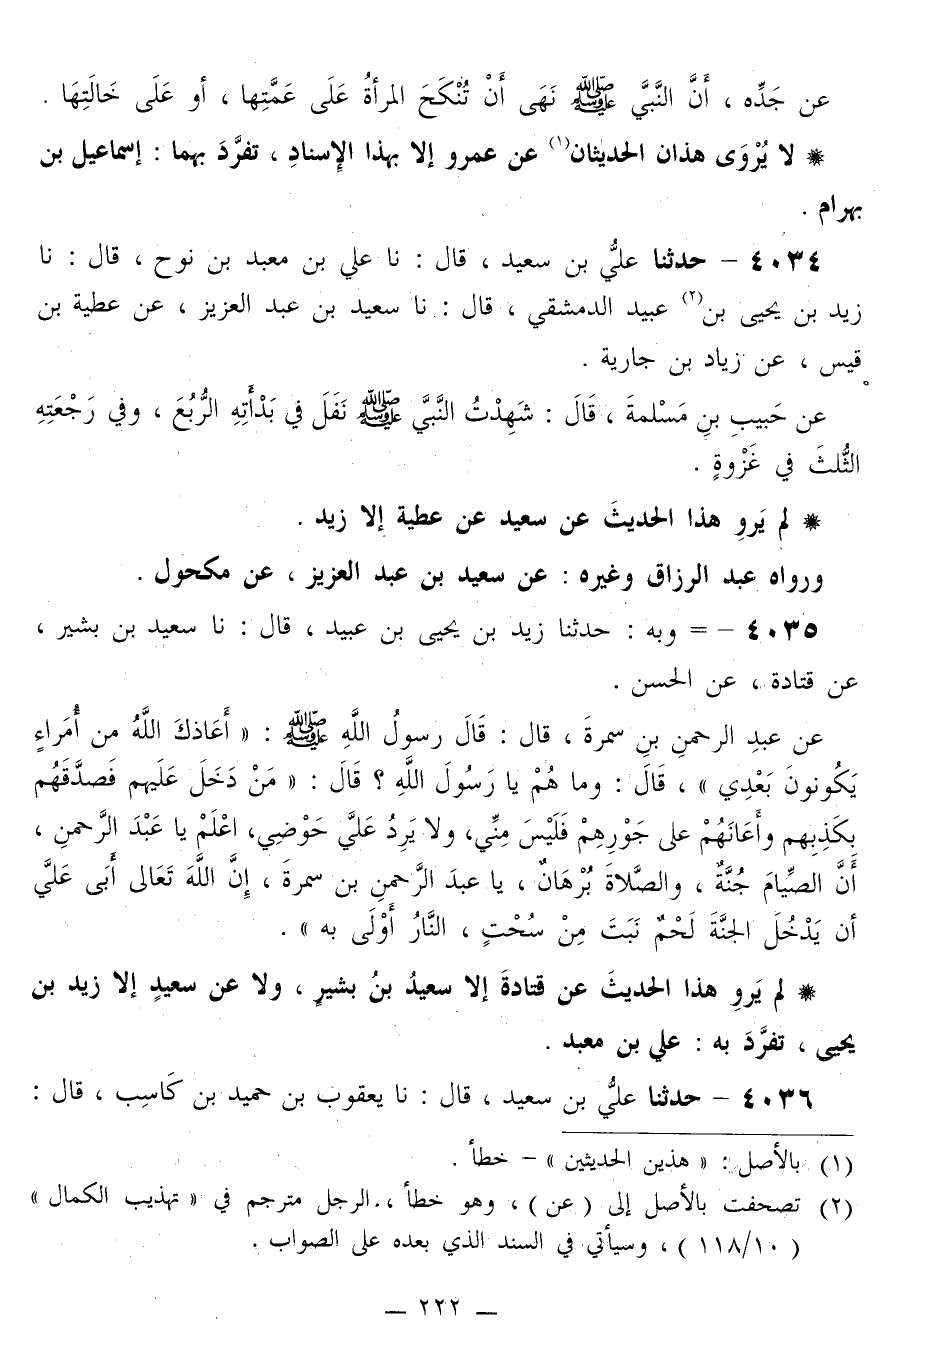 عن جَدِّه ، أَنَّ النَّبيَّ ﷺ نَهَى أَنْ تُنْكَحَ المرأةُ عَلَى عَمَّتِها ، أو عَلَى خَالَتِهَا .
* لا يُرْوَى هذان الحديثان(١) عن عمرو إلا بهذا الإسنادِ ، تفرَّدَ بهما : إسماعيل بن
بهرام .
٤٠٣٤ – حدثنا عليُّ بن سعيد ، قال : نا علي بن معبد بن نوح ، قال : نا
زيد بن يحيى بن(٢) عبيد الدمشقي ، قال : نا سعيد بن عبد العزيز ، عن عطية بن
قيس ، عن زياد بن جارية .
عن حَبيبِ بنِ مَسْلمةَ ، قَالَ : شَهِدْتُ النَّبيَّ ﷺ نَفَلَ في بَدْأَتِهِ الرُّبُعَ ، وفي رَجْعَتِهِ
الثُّلثَ في غَزْوةٍ .
* لم يَروِ هذا الحديثَ عن سعيد عن عطية إلا زيد .
ورواه عبد الرزاق وغيره : عن سعيد بن عبد العزيز ، عن مكحول .
٤٠٣٥ – = وبه : حدثنا زيد بن يحيى بن عبيد ، قال : نا سعيد بن بشير ،
عن قتادة ، عن الحسن .
عن عبدِ الرحمنِ بنِ سمرةَ ، قال : قَالَ رسولُ اللَّهِ ﷺ : « أَعَاذكَ اللَّهُ من أُمَراءٍ
يَكُونونَ بَعْدِي » ، قَالَ : وما هُمْ يا رَسُولَ اللَّهِ ؟ قَالَ : « مَنْ دَخَلَ عَلَيهم فَصدَّقَهُم
بِكَذِبِهم وأَعَانَهُمْ على جَوْرِهِمْ فَلَيْسَ مِنِّي، ولا يَرِدُ عَليَّ حَوْضِي، اعْلَمْ يا عَبْدَ الرَّحمنِ ،
أَنَّ الصِّيامَ جُنَّةٌ ، والصَّلاةَ بُرْهَانٌ ، يا عبدَ الرَّحمنِ بن سمرةَ ، إِنَّ اللَّهَ تَعَالى أَبَى عَليَّ
أن يَدْخُلَ الجنَّةَ لَحْمٌ نَبَتَ مِنْ سُحْتٍ ، النَّارُ أَوْلَى به » .
* لم يَروِ هذا الحديثَ عن قتادةَ إلا سعيدُ بنُ بشيرٍ ، ولا عن سعيدٍ إلا زيد بن
يحيى ، تفرَّدَ به : علي بن معبد .
٤٠٣٦ – حدثنا عليُّ بن سعيد ، قال : نا يعقوب بن حميد بن كَاسِب ، قال :
(١) بالأصل : « هذين الحديثين » – خطأ .
(٢) تصحفت بالأصل إلى ( عن ) ، وهو خطأ ، . الرجل مترجم في « تهذيب الكمال »
( ١١٨/١٠ ) ، وسيأتي في السند الذي بعده على الصواب .
— ٢٢٢ —